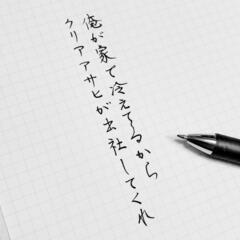 俺が家で冷えてるから
クリアアサヒが出社してくれ